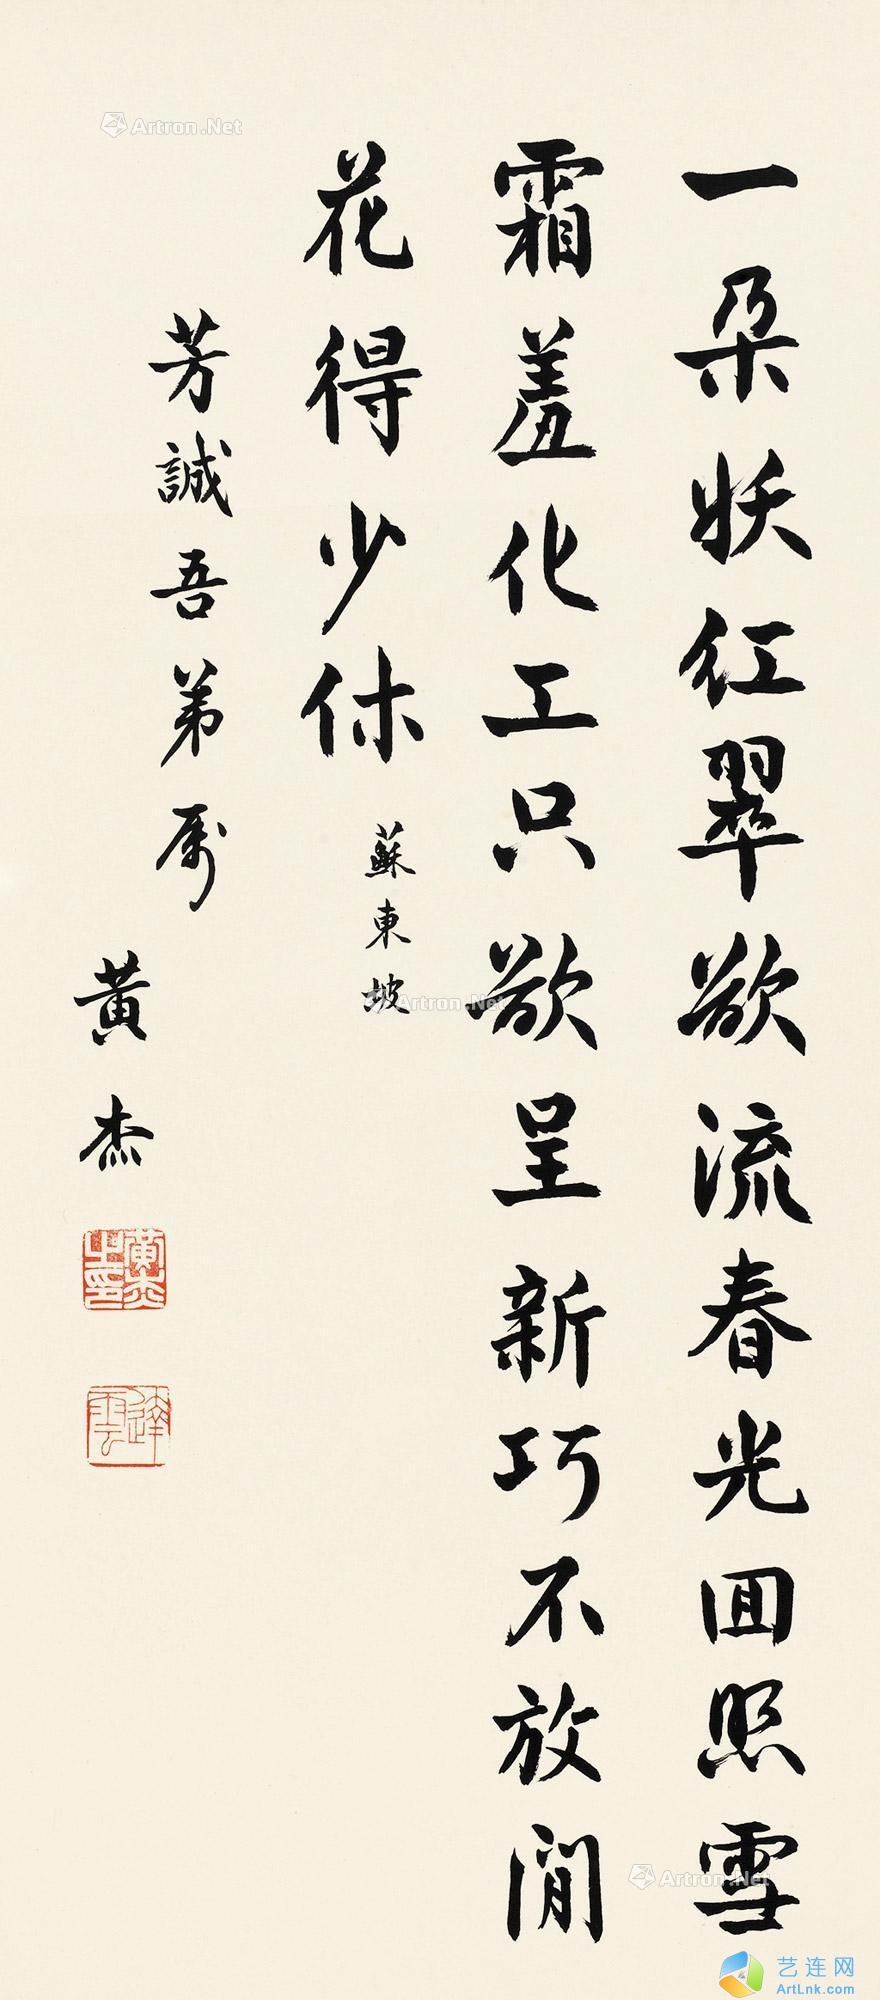 一朵妖红翠欲流春光回照雪
霜羞化工只欲呈新巧不放閒
花得少休
蘇東坡
芳誠吾弟属
黄杰
黄杰之印
達雲
Artron.Net
Artron.Net
Artron.Net
艺连网
ArtLnk.com